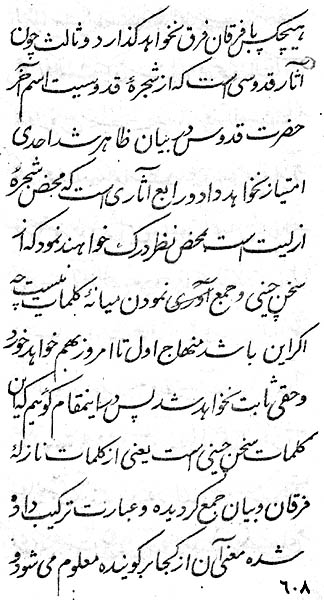 هیچکس با فرقان فرق نخواهد گذارد و ثالث چون
آثار قدوسی است که از شجرهٔ قدوسیت اسم آخر
حضرت قدوس در بیان ظاهر شد احدی
امتیاز نخواهد داد و رابع آثاری است که محض شجرهٔ
ازلیت است بمحض نظر درک خواهند نمود که از
سخن چینی و جمع آوری نمودن میانهٔ کلمات نیست چه
اگر این باشد منهاج اول تا امروز بهم خواهد خورد
و حقی ثابت نخواهد شد پس در اینمقام گوئیم که این
کلمات سخن چینی است یعنی از کلمات نازلهٔ
فرقان و بیان جمع گردیده و عبارت ترکیب داده
شده معنی آن از کجا بر گوینده معلوم می شود و
۶۰۸